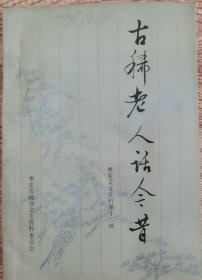 古稀老人话今昔
枣庄文史资料第十一辑
枣庄市政协文史资料委员会